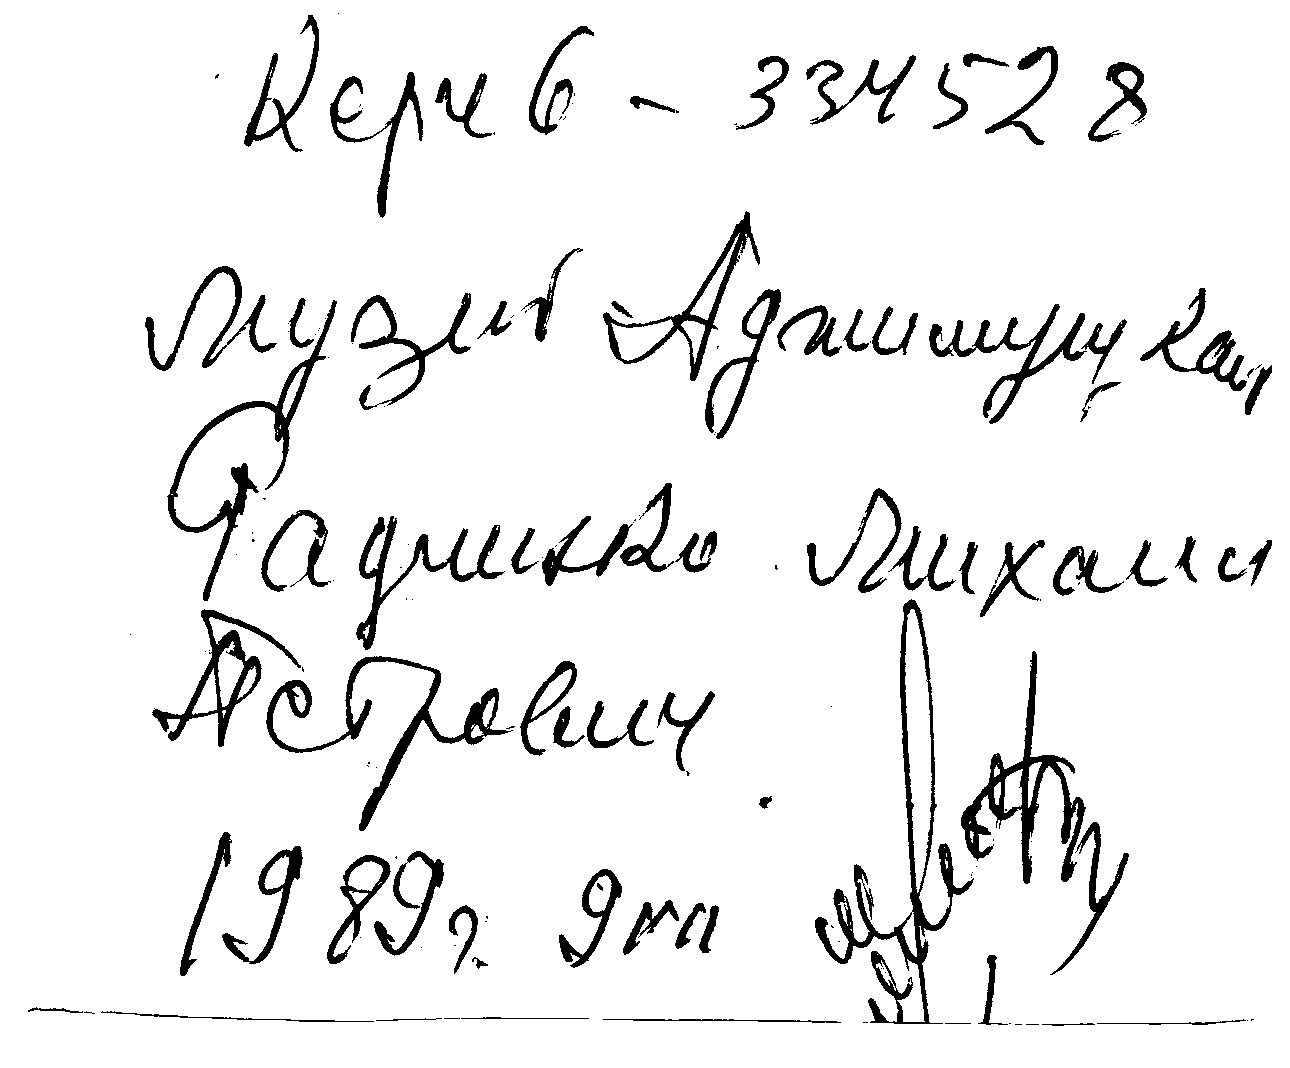 Керч 6 - 334528
музей Аджимушкая
Радченко Михаил
Петрович
1989г. 9